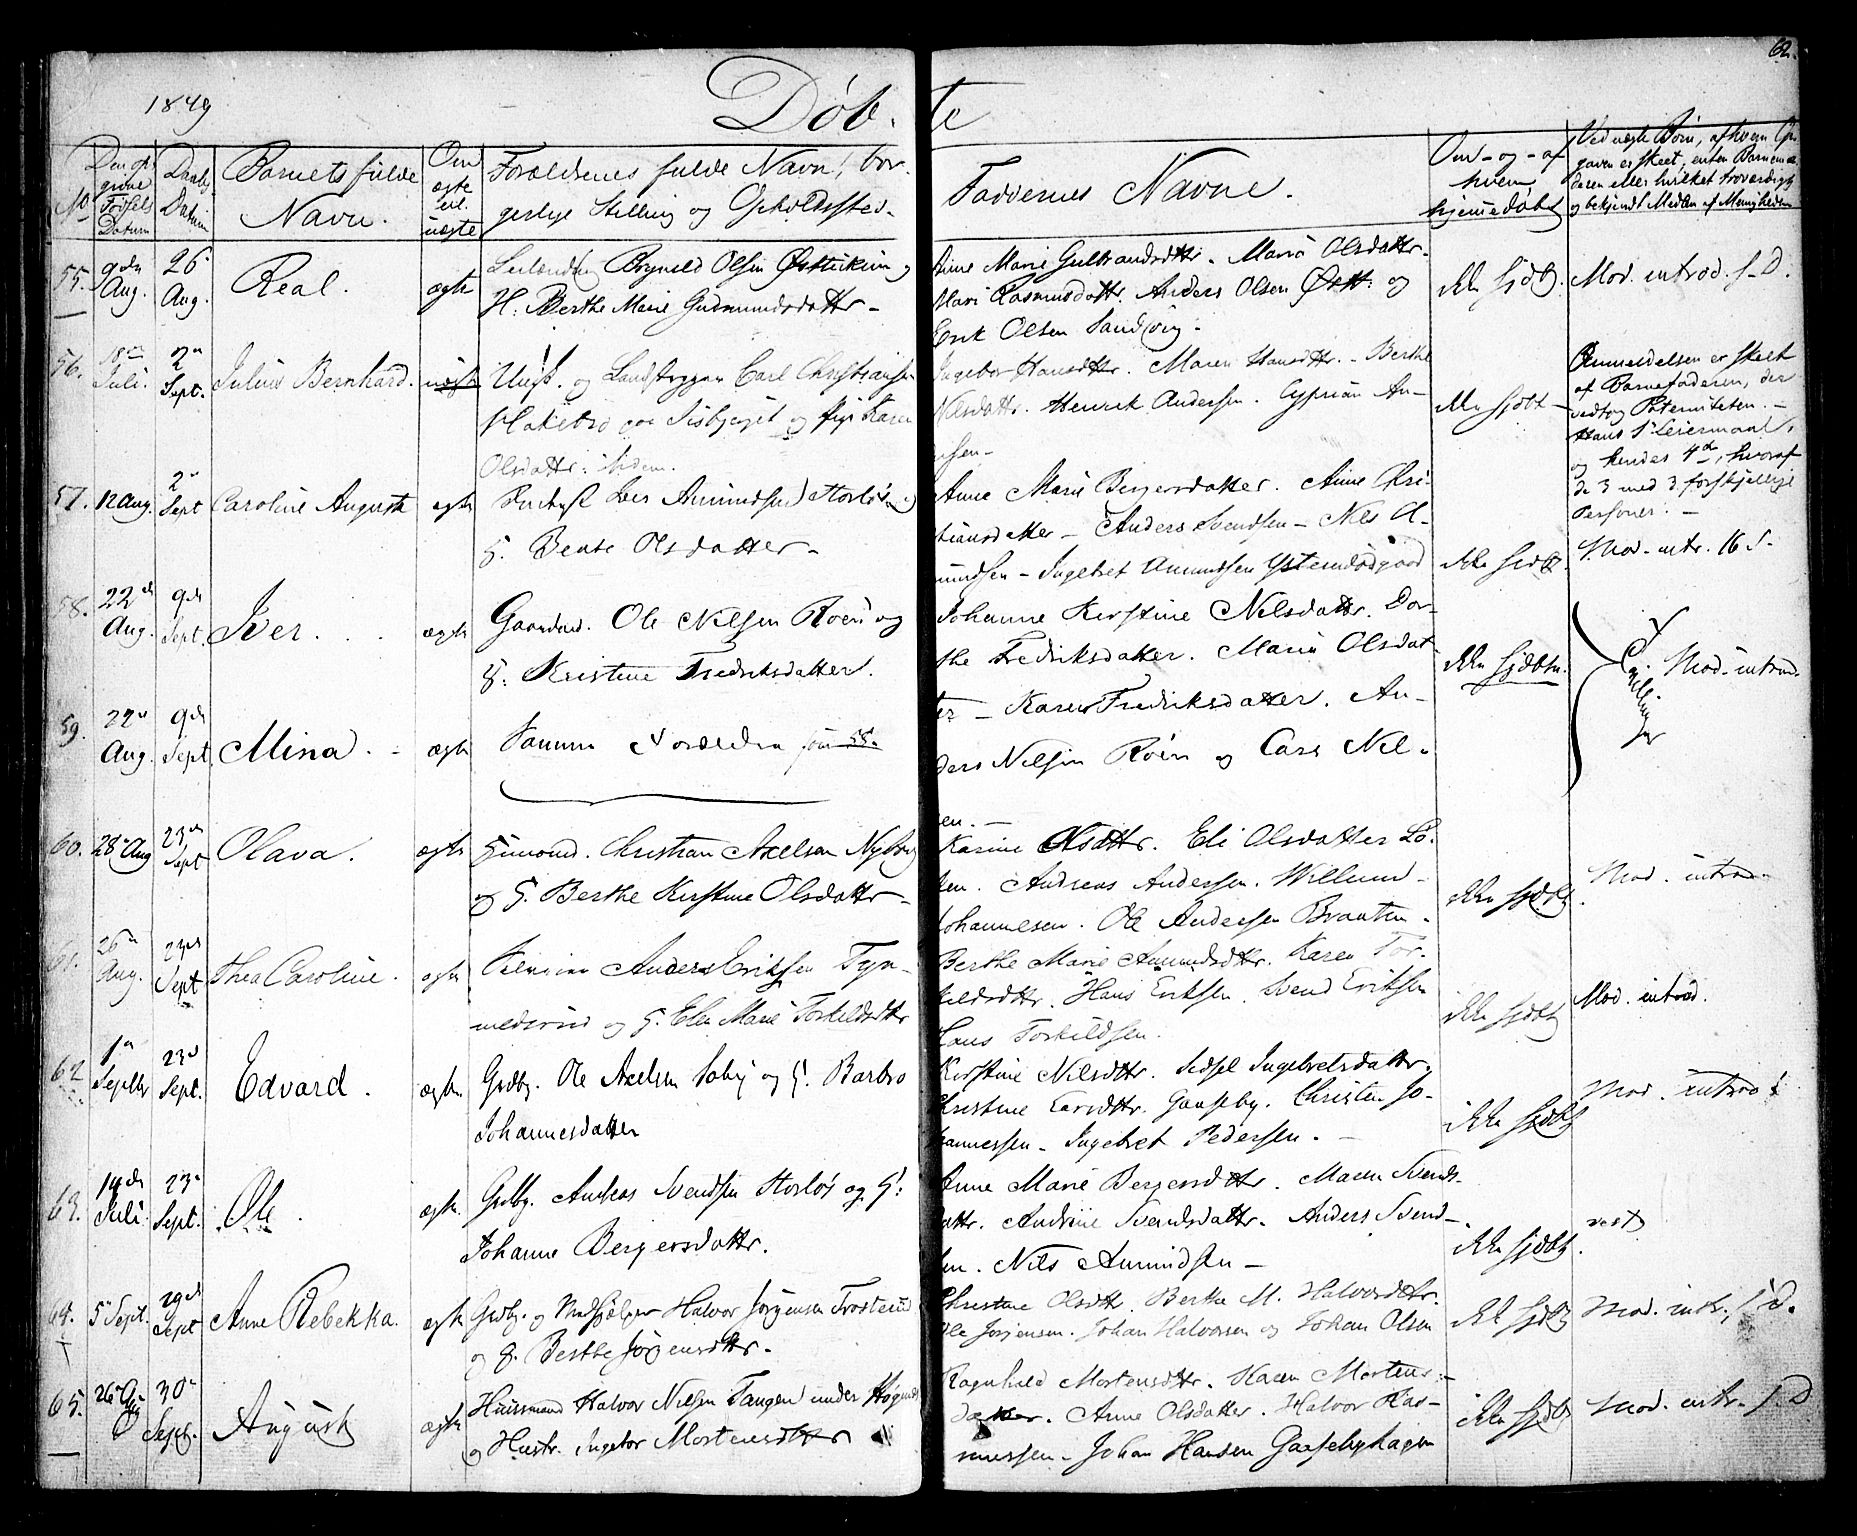 62.
1849
Døbte
No
Den opgivne Fødsels Datum
Daabs Datum
Barnets fulde Navn.
Om ægte el. uægte
Forældrenes fulde Navn, borgerlige Stilling og Opholdssted.
Faddernes Navne.
Om og af hvem hjemmedøbt
Ved uægte Børn, af hvem Opgaven er skeet, enten Barnemoderen eller hvilket troværdigt og bekjendt Medlem af Menigheden
55. 9de Aug. 26 Aug. Real. ægte
Brynild Olsen og
H. Berthe Marie Gudmundsdatter
Anne Marie Gulbrandsdttr. Maria Olsdattr.
Mari Rasmusdattr. Anders Olsen Østt. og
Erik Olsen Sandvig.
Ikke hjdbt. Mod. introd. s. D.
56. 18 Juli. 2 Sept. Julius Bernhard. uægte
Ungk. og Landstryger Carl Christiansen
og Pige Karen
Olsdattr. ibidem.
Ingebor Hansdttr. Maren Hansdttr. Berthe
Nilsdattr. Henrik Andersen. Cyprian An-
sen.
ikke hjdbt
Anmeldelsen er skeet
af Barnefaderen, der
vedtog Paterniteten.
Hans 1ste Leiermaal,
og hendes 4de, hvoraf
de 3 med 3 forskjellige
Personer.
57. 12 Aug. 2 Sept Caroline Auguste ægte
Lars Amundsen Storløs og
H. Bente Olsdatter
Anne Marie Bergersdatter. Anne Chri-
stiansdatter - Anders Svendsen - Nils A-
mundsen - Ingebret Amundsen
ikke hjdbt. Mod. intr. 16 S.
58. 22de Aug. 9de Sept. Iver. ægte
Gaardmd. Ole Nilsen Roen og
H. Kristine Fredriksdatter.
Johanne Kirstine Nilsdattr. Dor-
the Fredriksdatter. Maria Olsdat-
ter - Karen Fredriksdatter. An-
ikke hjdbte.
Tvillinger Mod. introd.
59. 22 Aug. 9de Sept. Mina. ægte
Samme Forældre som 58.
ders Nilsen Roen og Lars Nil-
sen.
60. 28 Aug 23de Sept Olava. ægte
Huusmd. Christian Axelsen Nyborg
og H. Berthe Kirstine Olsdattr
Karine Olsdttr. Eli Olsdatter Lø-
ken. Andreas Andersen.
Johannesen. Ole Andersen Braaten.
ikke hjdbt. Mod. introd.
61. 26 Aug. 23de Sept. Thea Caroline. ægte
Anders Eriksen Tyn-
og H. Elen Marie Torkildsdttr
Berthe Marie Amundsdttr. Karen Tor-
kildsdttr. Hans Eriksen. Svend Eriksen
Hans Torkildsen.
ikke hjdbt Mod. introd.
62 1 Septbr 23d Sept. Edvard. ægte.
Grdbr. Ole Axelsen og H. Barbro
Johannesdatter
Kirstine Nilsdttr. Sidsel Ingebretsdattr.
Christine Gaaseby. Christen Jo-
hannessen. Ingebret Pedersen.
ikke hjdbt Mod. introd.
63. 14de Juli. 23 Sept. Ole. ægte.
Grdbr. Andreas Svendsen Storløs og H.
Johanne Bergersdattr.
Anne Marie Bergersdttr. Maren Svends-
dattr. Andrine Svendsdattr. Anders Svend-
sen. Nils Amundsen
ikke hjdbt.
64. 5 Sept. 29de Sept Anne Rebekka. ægte
Grdbr. og Medhjelper Halvor Jørgensen Trosterud
og H. Berthe Jørgensdttr.
Christine Olsdttr. Berthe M. Halvorsdttr.
Ole Jørgensen. Johan Halvorsen og Johan Olsen
ikke hjdbt Mod. intr. s. D.
65. 26 Aug 30 Sept. August ægte
Huusmand Halvor Nilsen Tangen under
og Hustr. Ingebor Mortensdttr
Ragnhild Mortensdttr. Karen Mortens-
datter. Anne Olsdatter. Halvor Ras-
mussen. Johan Hansen Gaasebyhagen
ikke hjdbt Mod. intr. s. D